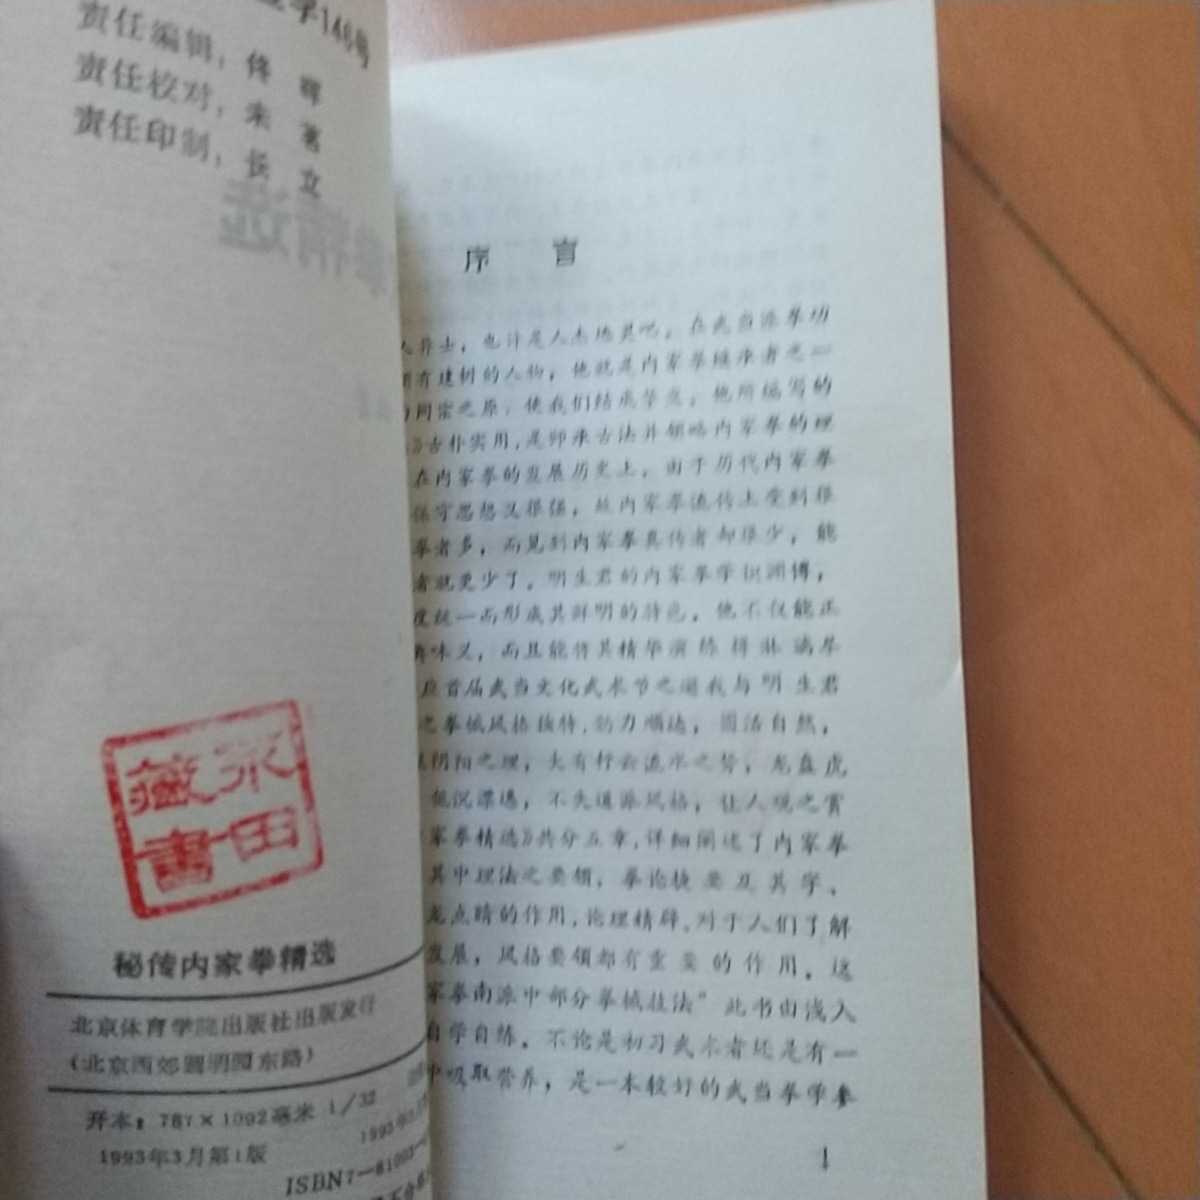 字146号
责任编辑，佟 晖
责任校对，未 著
责任印制，长 立
精选
永田
藏書
秘传内家拳精选
北京体育学院出版社出版发行
(北京西郊圆明园东路)
开本：787×1092毫米 1/32
1993年3月第1版
ISBN7－81003－
序 言
人异士，也许是人杰地灵吧，在武当派拳功
有建树的人物，他就是内家拳继承者之一
同宗之原，使我们结成挚友，他所编写的
》古朴实用，是师承古法并领略内家拳的理
在内家拳的发展历史上，由于历代内家拳
保守思想又很强，故内家拳流传上受到很
拳者多，而见到内家拳真传者却很少，能
者就更少了。明生君的内家拳学识渊博，
度统一而形成其鲜明的特色。他不仅能正
味义，而且能将其精华演练得淋漓尽
应首届武当文化武术节之邀我与明生君
之拳械风格独特，劲力顺达，圆活自然，
阴阳之理，大有行云流水之势，龙盘虎
沉漂逸，不失道派风格，让人观之赏
家拳精选》共分五章，详细阐述了内家拳
其中理法之要领，拳论捷要及其字、
龙点睛的作用，论理精辟。对于人们了解
发展，风格要领都有重要的作用。这
家拳南派中部分拳械技法”此书由浅入
自学自练。不论是初习武术者还是有一
中吸取营养，是一本较好的武当拳学参
1